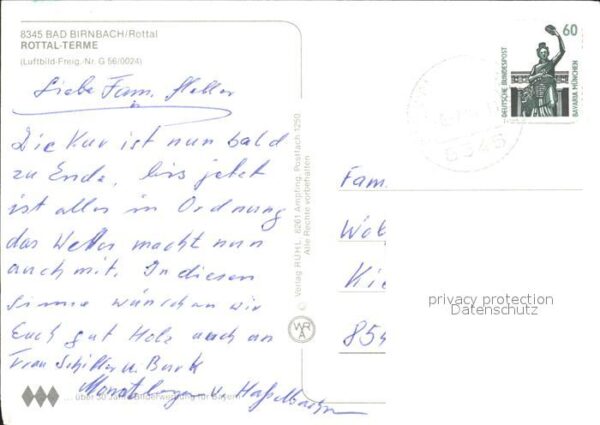 8345 BAD BIRNBACH/Rottal
ROTTAL-TERME
(Luftbild-Freig./Nr. G 56/0024)
Liebe Fam.
Die Kur ist nun bald
zu Ende, bis jetzt
ist alles in Ordnung
das Wetter macht nun
auch mit. In diesen
Sinne wünschen wir
Euch gut Holz auch an
Frau Schiller u. Bark
v.
... über 30 Jahre Bilderwerbung für Bayern
© Verlag RUHL 8261 Ampfing Postfach 1250
Alle Rechte vorbehalten
WRA
60
DEUTSCHE BUNDESPOST
BAVARIA MÜNCHEN
8345
Fam.
Wol
Kie
854
privacy protection
Datenschutz